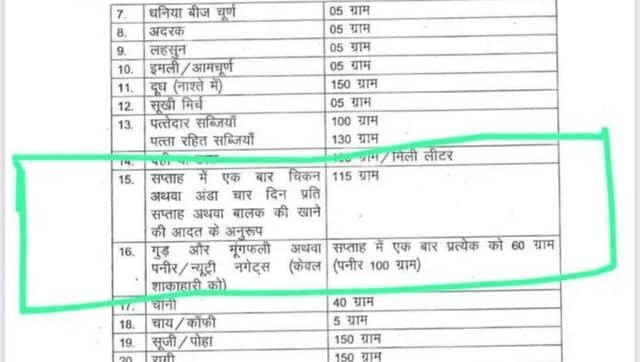 7. धनिया बीज चूर्ण 05 ग्राम
8. अदरक 05 ग्राम
9. लहसुन 05 ग्राम
10. इमली/आमचूर्ण 05 ग्राम
11. दूध (नाश्ते में) 150 ग्राम
12. सूखी मिर्च 05 ग्राम
13. पत्तेदार सब्जियाँ 100 ग्राम
पत्ता रहित सब्जियाँ 130 ग्राम
14. ग्राम/मिली लीटर
15. सप्ताह में एक बार चिकन 115 ग्राम
अथवा अंडा चार दिन प्रति
सप्ताह अथवा बालक की खाने
की आदत के अनुरूप
16. गुड़ और मूंगफली अथवा सप्ताह में एक बार प्रत्येक को 60 ग्राम
पनीर/न्यूट्री नगेट्स (केवल (पनीर 100 ग्राम)
शाकाहारी को)
17. चीनी 40 ग्राम
18. चाय/कॉफी 5 ग्राम
19. सूजी/पोहा 150 ग्राम
20. रागी 150 ग्राम